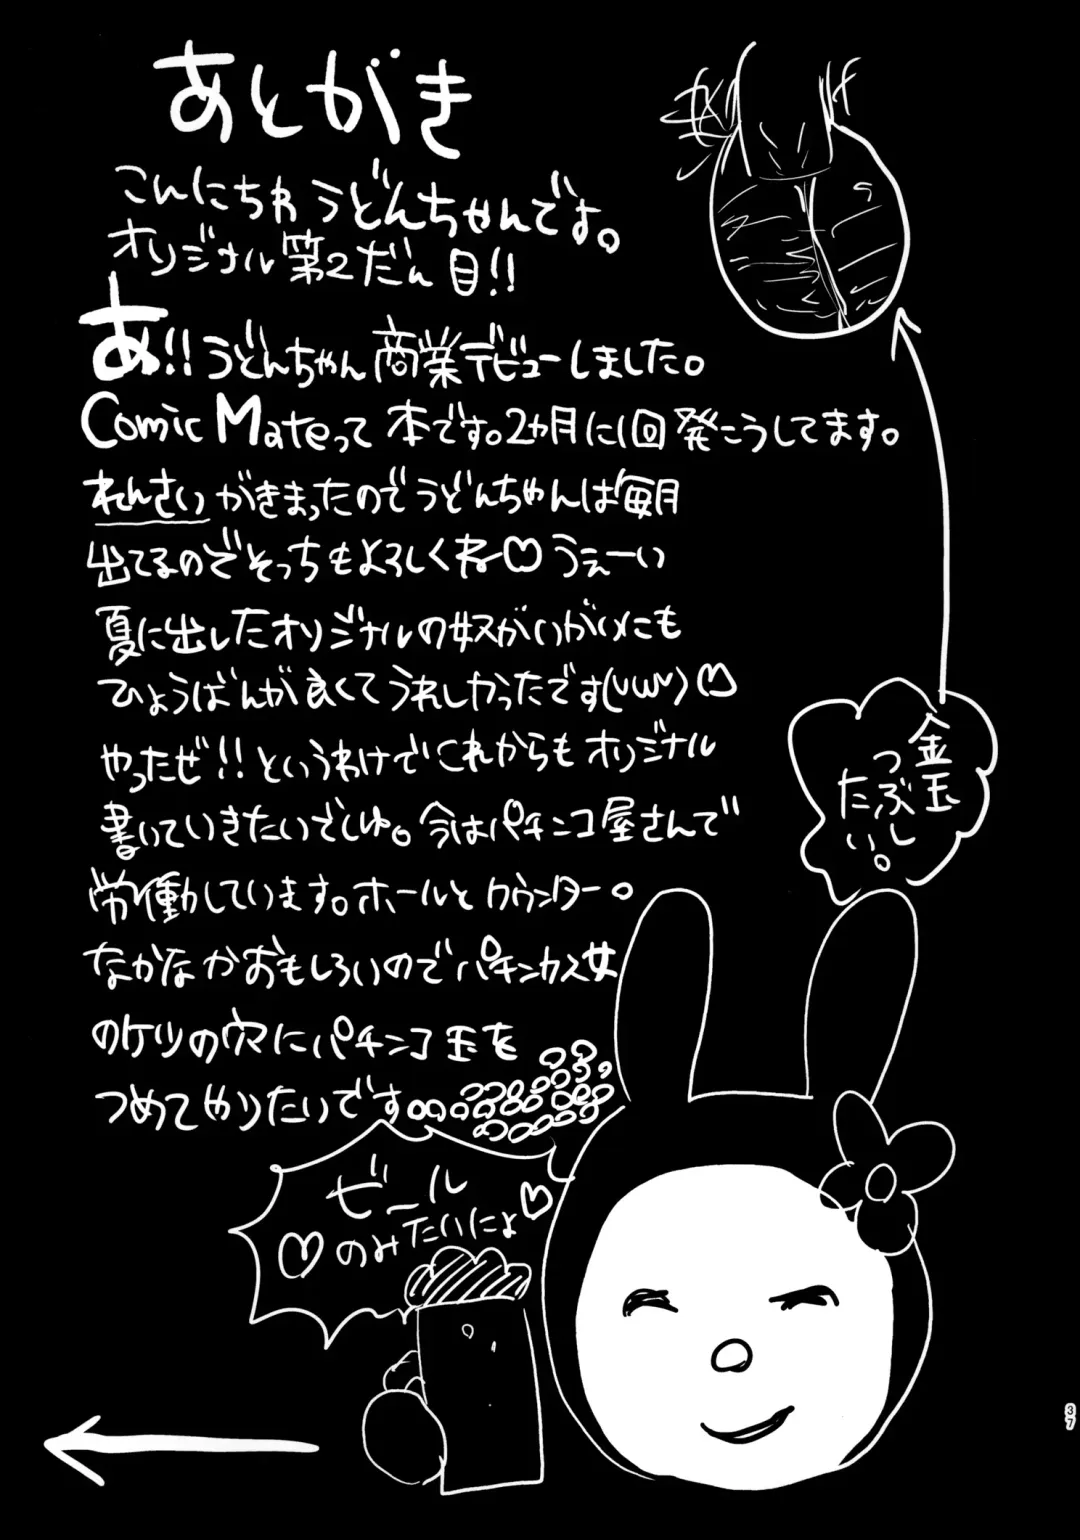 あとがき
こんにちわ うどんちゃんです。
オリジナル第2だん目!!
あ!!うどんちゃん商業デビューしました。
Comic Mateって本です。2カ月に1回発こうしてます。
れんさいがきまったのでうどんちゃんは毎月
出てるのでそっちもよろしくね♡うぇーい
夏に出したオリジナルの奴がいがいにも
ひょうばんが良くてうれしかったです(UωU)♡
やったぜ!!というわけでこれからもオリジナル
書いていきたいでしゅ。今はパチンコ屋さんで
労働しています。ホールとカウンター。
なかなかおもしろいのでパチンカス女
のケツの穴にパチンコ玉を
つめてやりたいです。
金玉
つぶし
たい。
ビール
♡のみたいにょ♡
37